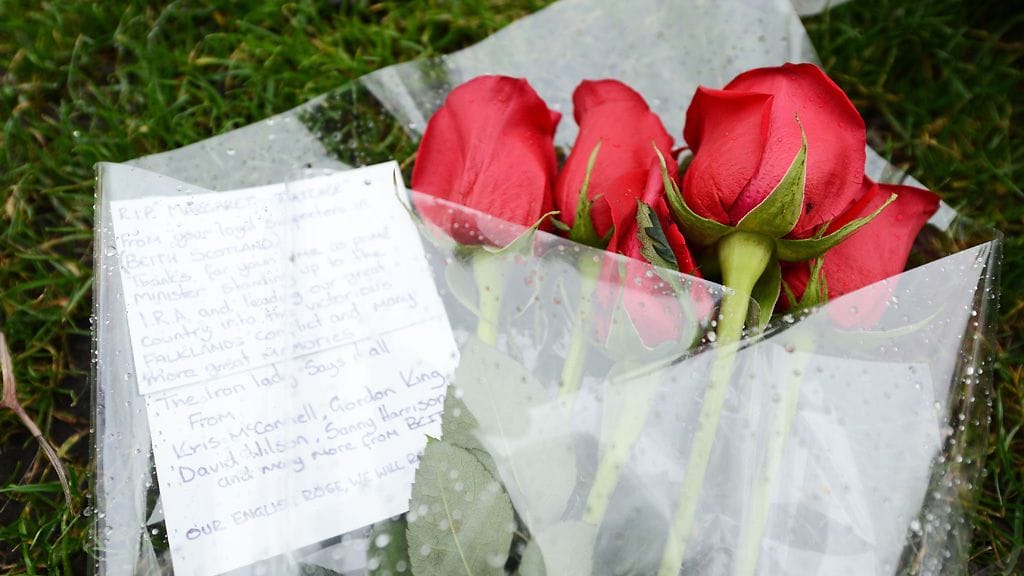 R.I.P. "MARGARET THATCHER"
From your loyal supporters in
(BEITH SCOTLAND)
Thanks for your time as prime
minister standing up to the
I.R.A and leading our great
country into the victorious
FALKLANDS conflict and many
more great memories
"The Iron lady" says it all
From
Kris McConnell, Gordon King,
David Wilson, Sanny Harrison
and many more from BEI
OUR ENGLISH ROSE, WE WILL